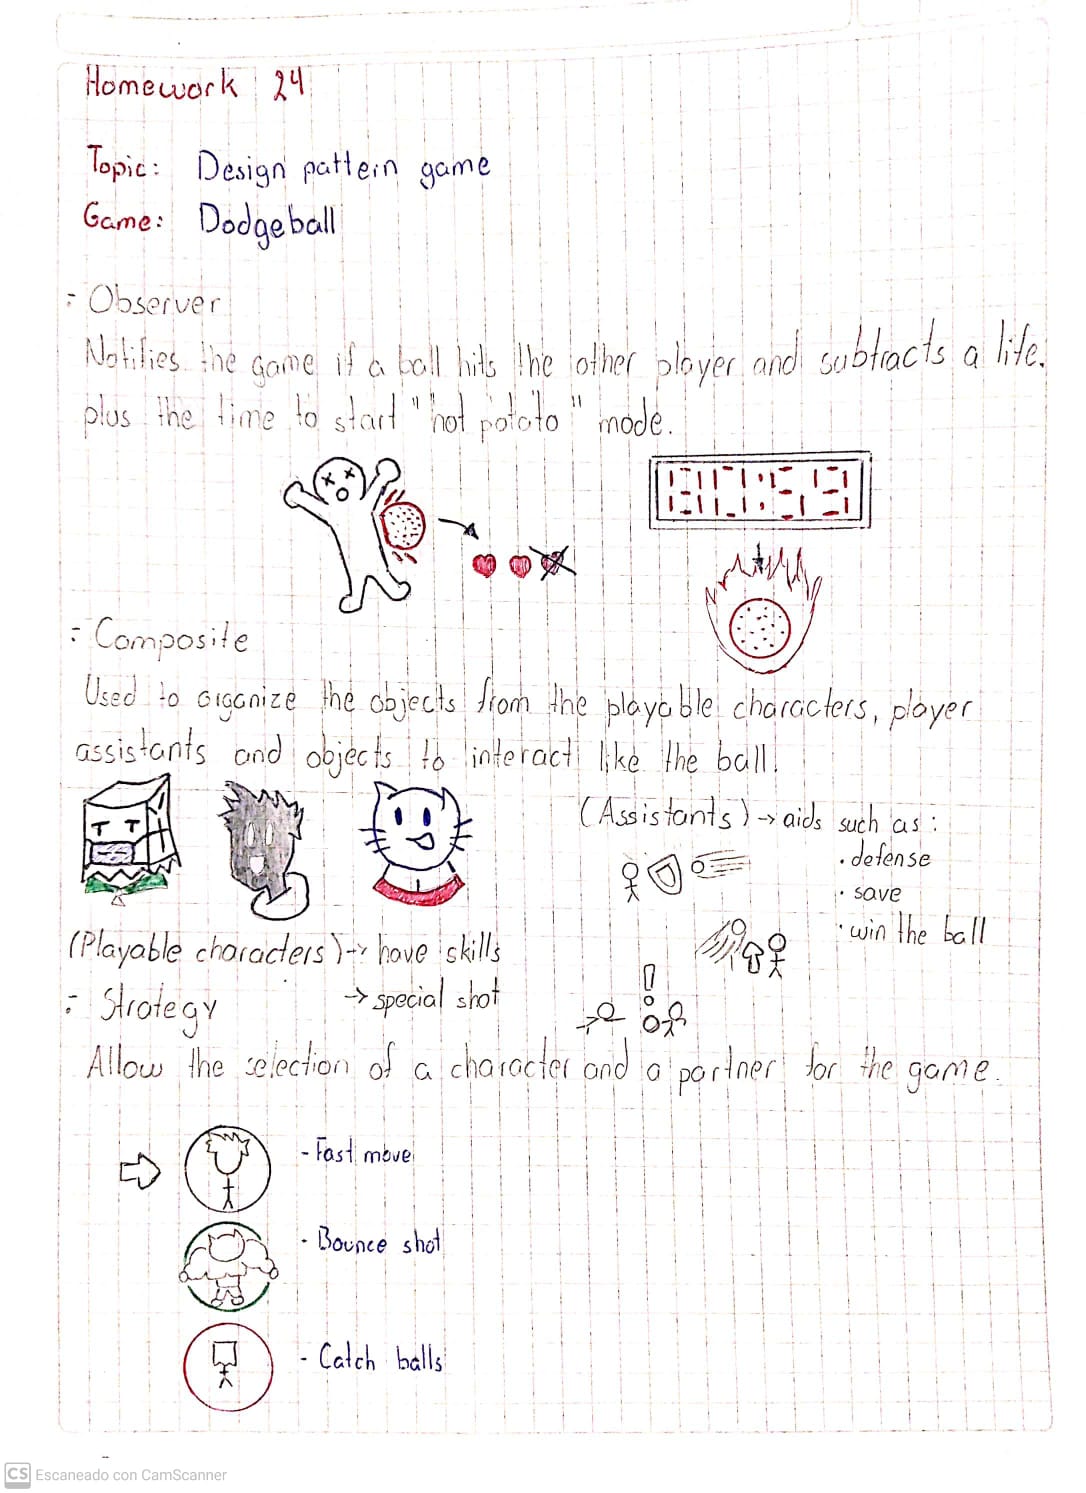 Homework 24
Topic: Design pattern game
Game: Dodgeball
- Observer
Notifies the game if a ball hits the other player and subtracts a life.
plus the time to start "hot potato" mode.
- Composite
Used to organize the objects from the playable characters, player
assistants and objects to interact like the ball.
(Assistants) → aids such as:
· defense
· save
· win the ball
(Playable characters) → have skills
→ special shot
- Strategy
Allow the selection of a character and a partner for the game.
- Fast move
- Bounce shot
- Catch balls
CS Escaneado con CamScanner